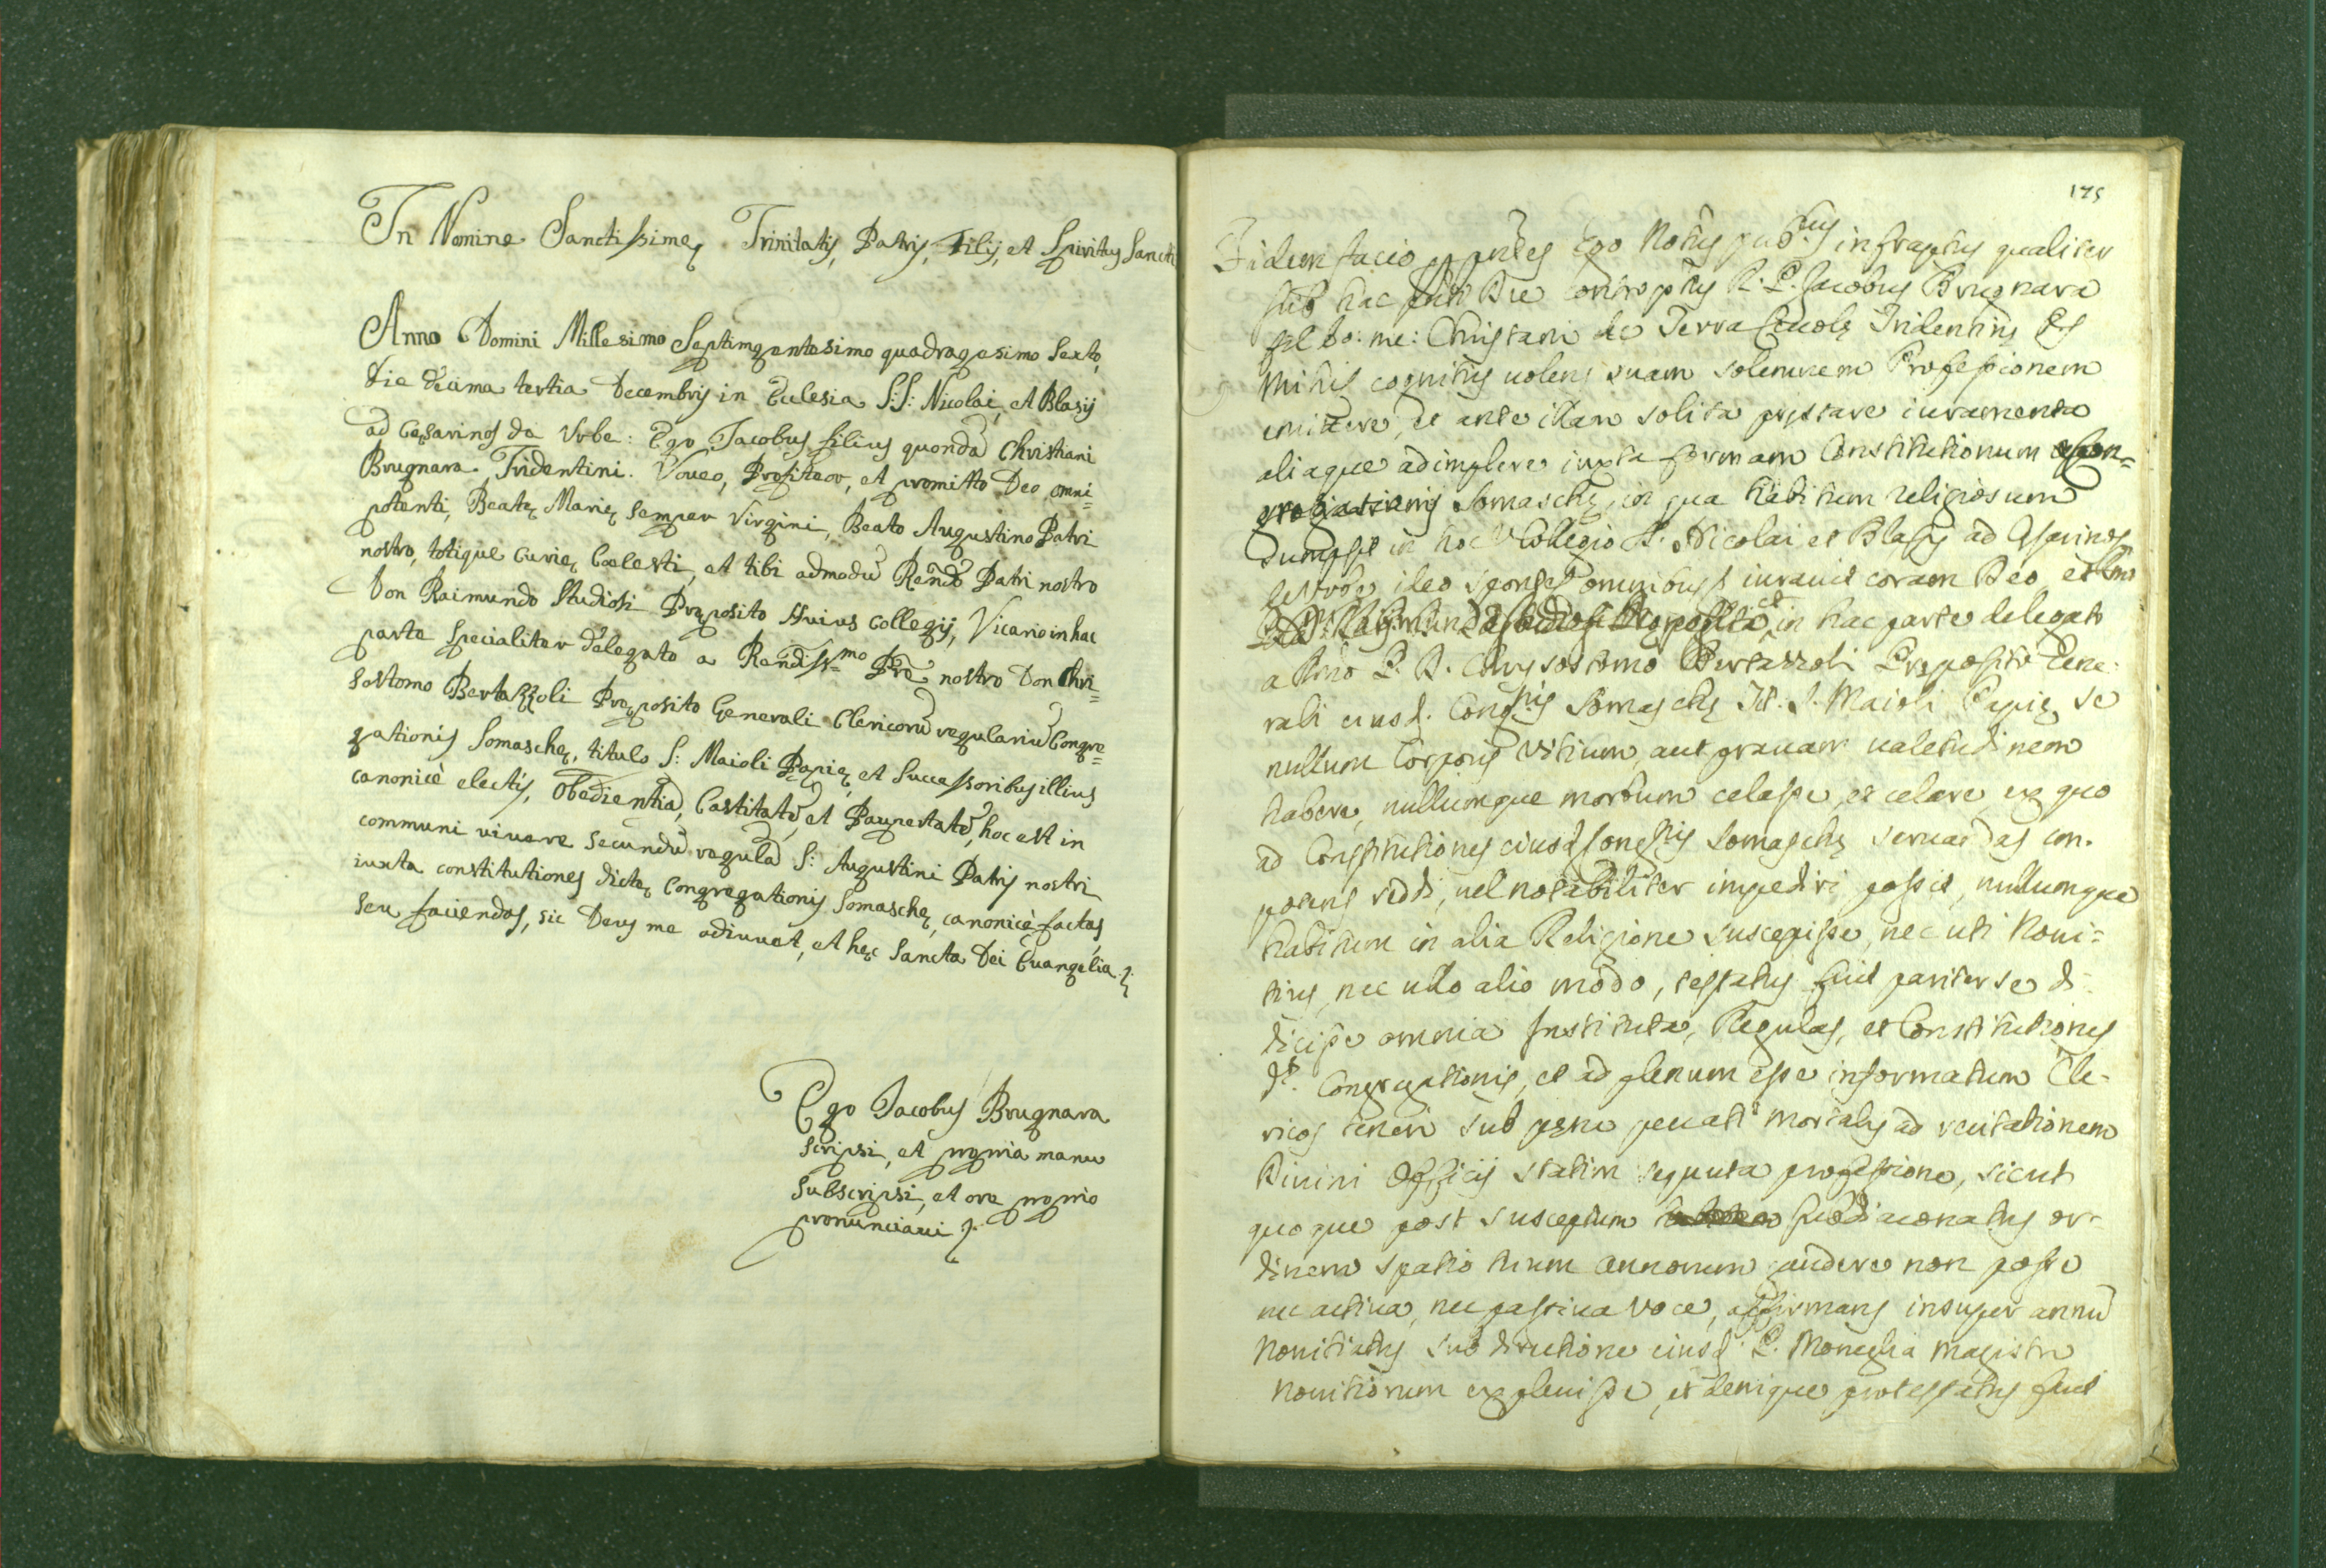 In Nomine Sanctissimę Trinitatis, Patris, Filij, et Spiritus Sancti
Anno Domini Millesimo Septimgentesimo quadragesimo Sexto,
die decima tertia Decembris in Eclesia S:S: Nicolai, et Blasij
ad Cęsarinos da Vrbe: Ego Jacobus filius quondã Christiani
Brugnara Tridentini. Voueo, Profiteor, et promitto Deo omni=
potenti, Beatę Marię semper Virgini, Beato Augustino Patri
nostro, totique Curię Cœlesti, et tibi admodũ Rendo Patri nostro
Don Raimundo Studiosi Pręposito Huius Collegij, Vicario in hac
parte specialiter delegato a Rendiss.mo Pre nostro Don Chri=
sostomo Bertazzoli Pręposito Generali Clericorũ regulariũ Congre=
gationis Somaschę, titulo S: Maioli Papię, et Successoribus illius
canonicè electis, Obedientiã, Castitatẽ, et Paupertatẽ, hoc est in
communi viuere secundũ regulã S: Augustini Patris nostri
iuxta constitutiones dictę Congregationis Somaschę, canonicè factas,
seu faciendas, sic Deus me adiuuet, et hęc Sancta Dei Euangelia
Ego Jacobus Brugnara
scripsi, et propria manu
subscripsi, et ore proprio
pronunciaui
175
Fidem facio Ego Notus infraptus qualiter
sub hac die R. P. Jacobus Brugnara
bo: me: Christani de Terra Tridentinus
mihi cognitus uolens suam solemnem Professionem
emittere, et ante illam solita prestare iuramenta
aliaque adimplere iuxta formam Constitutionum
Somaschę, in qua habitum religiosum
in hoc Collegio S. Nicolai et Blasij ad Cęsarinos
ideo omnibus iurauit coram Deo, et
in hac parte delegato
a P. D. Chrysostomo Bertazzoli Pręposito Gene:
rali eiusd. Cong.nis Somaschę S. Maioli Papię se
nullum Corporis vitium, aut grauam ualetudinem
habere, nullumque morbum celasse, et celare ex quo
ad Constitutiones eiusd Somaschę seruandas
reddi, uel notabiliter impediri possit, nullumque
habitum in alia Religione suscepisse, nec uti Noui=
tius, nec ullo alio modo, testatus fuit pariter se di-
dicisse omnia Instituta, Regulas, et Constitutiones
Congregationis, et ad plenum esse informatum Cle-
ricos teneri sub pęna peccati mortalis ad recitationem
Diuini Officij statim sequuta professione, sicut
quoque post susceptum or-
dinem spatio trium annorum gaudere non posse
nec actiua, nec passiua voce, affirmans insuper annũ
Nouitiatus sub directione eiusd. P. Moneglia Magistri
Nouitiorum expleuisse, et denique protestatus fuit